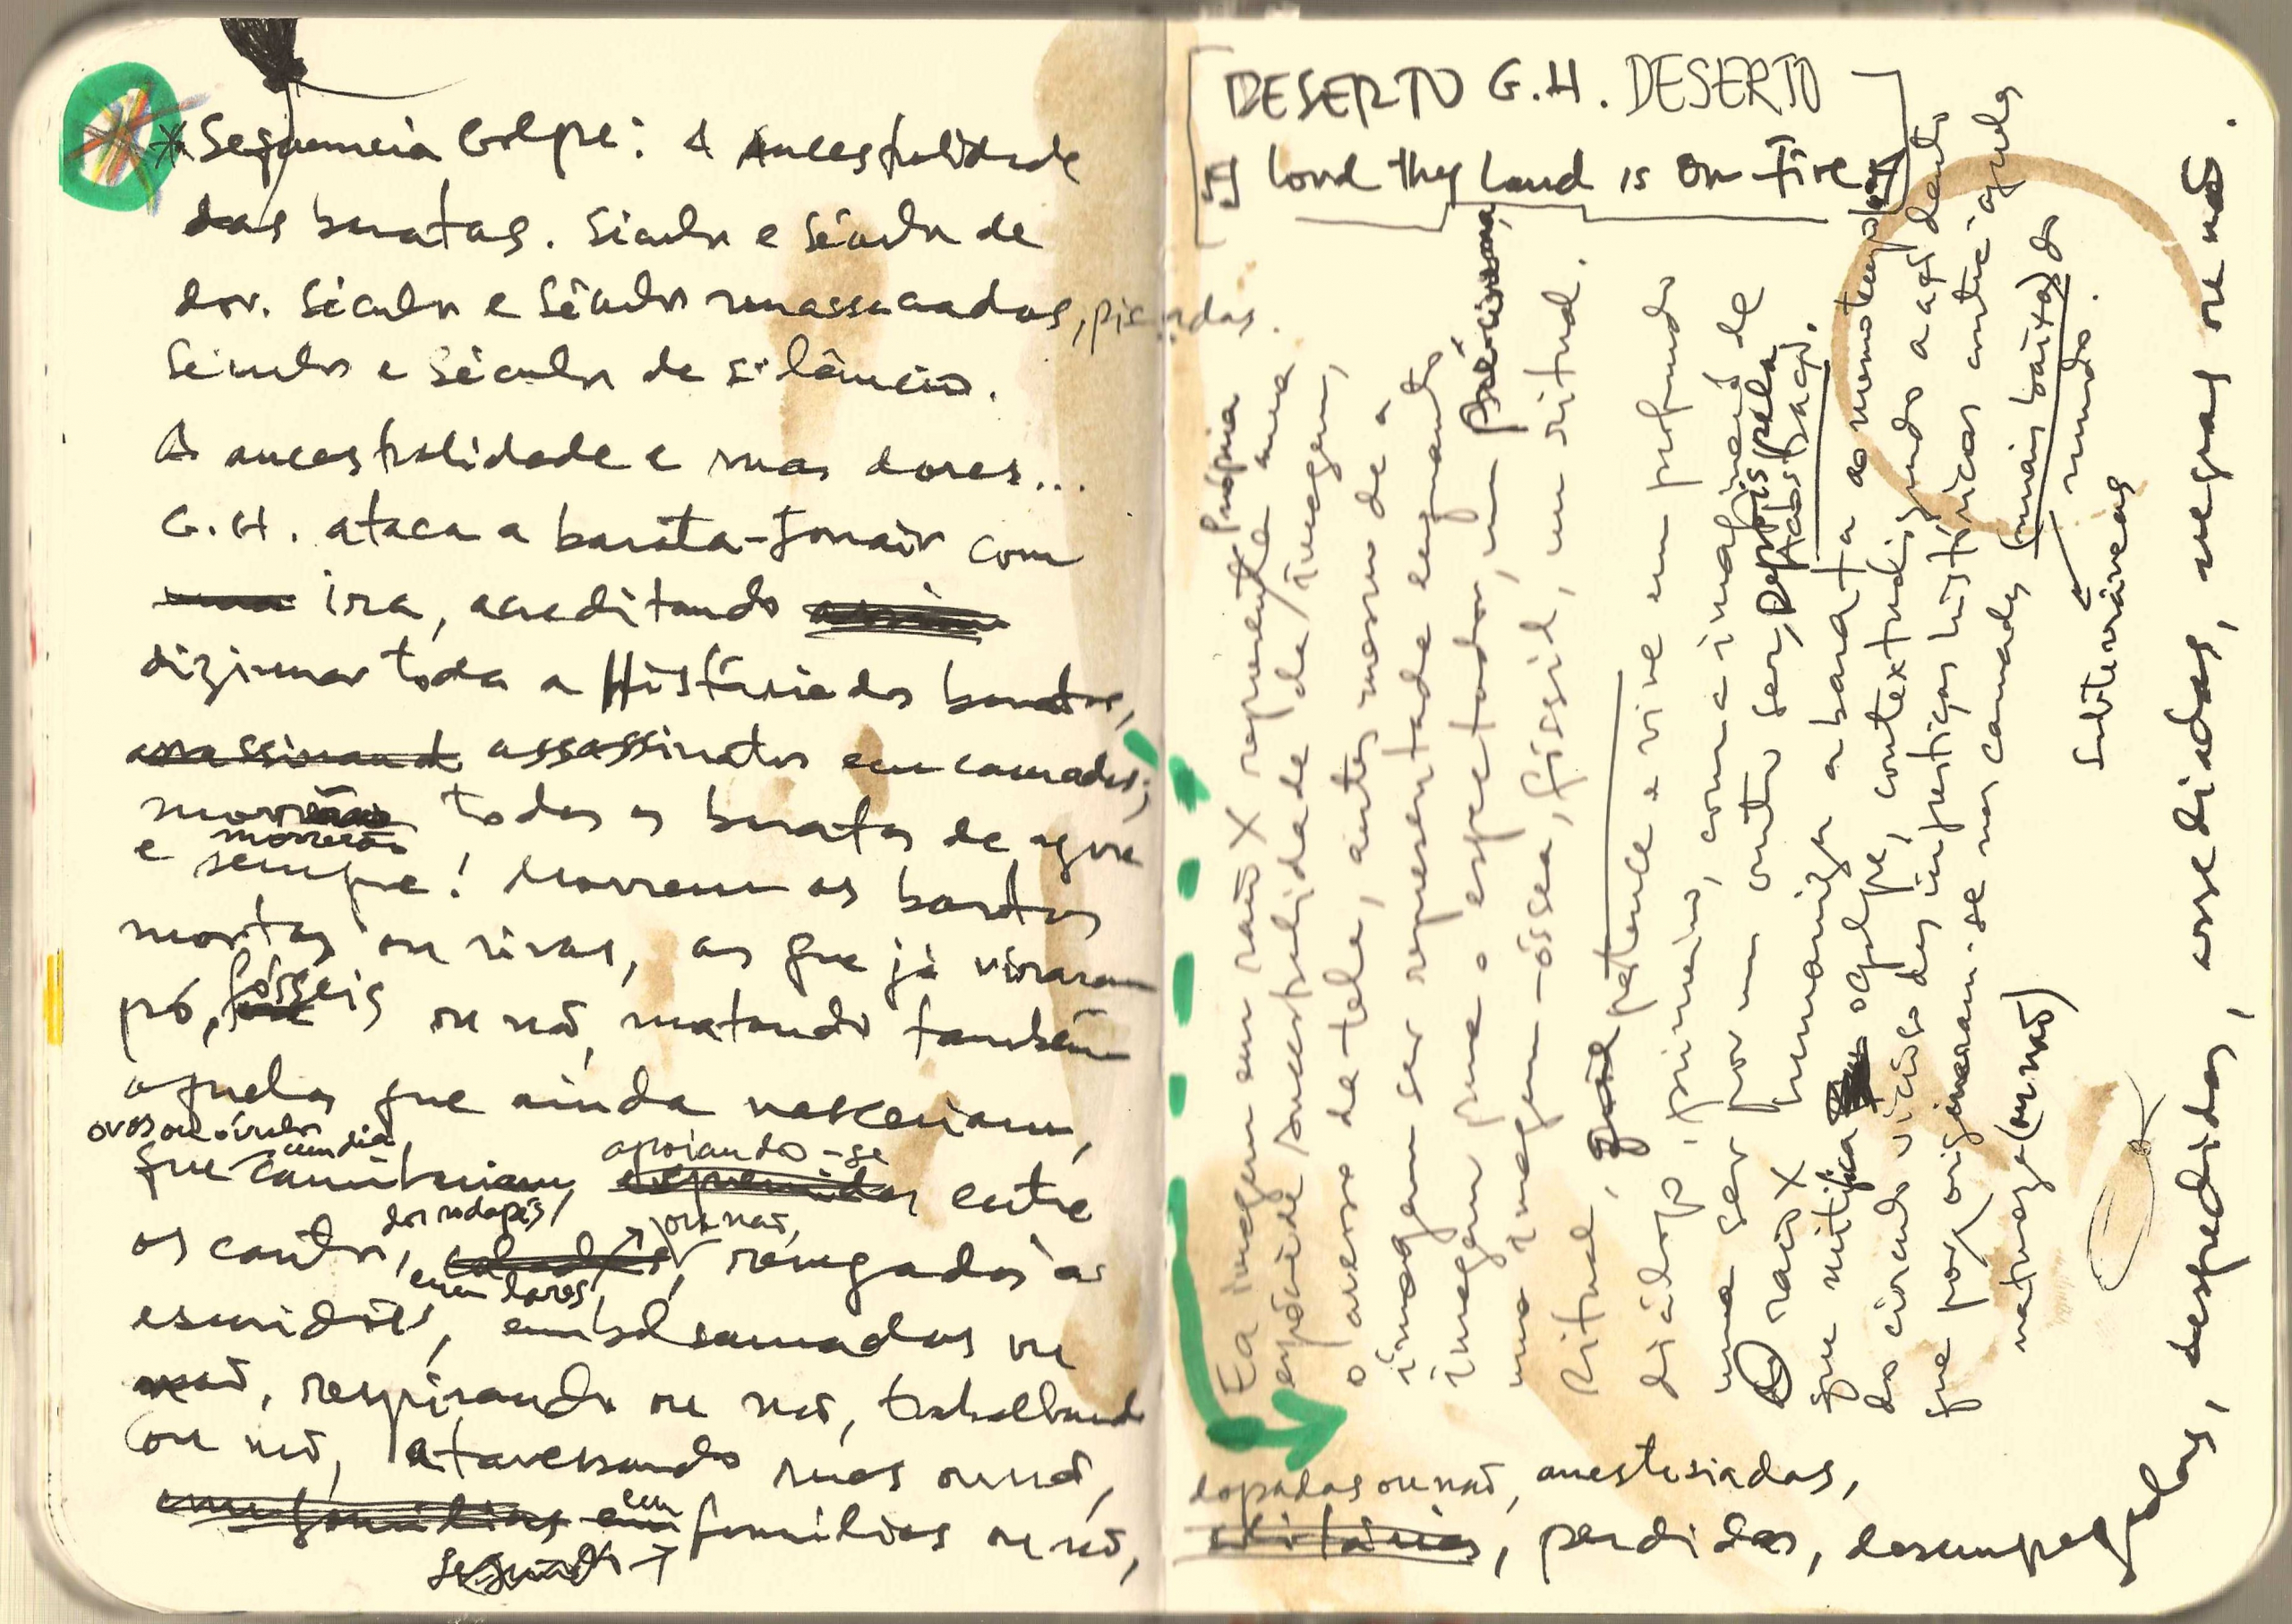 * Sequência Golpe: A Ancestralidade
das baratas. Séculos e séculos de
dor. Séculos e séculos massacradas, pisadas.
Séculos e séculos de silêncio.
A ancestralidade e suas dores...
G.H. ataca a barata-Janair com
ira, acreditando
dizimar toda a História das baratas,
assassinatos em camadas;
morrerão todas as baratas de agora
e sempre! Morrem as baratas
mortas ou vivas, as que já viraram
pó, fósseis ou não, matando também
aquelas que ainda nasceriam,
ovos ou óvulos
que um dia caminhariam, apoiando-se entre
os cantos, dos rodapés, ou não,
em lares, renegadas às
escuridões, embalsamadas ou
não, respirando ou não, trabalhando
ou não, atravessando ruas ou não,
em famílias ou não,
DESERTO G.H. DESERTO
Lord they Land is on Fire
E a imagem em raio X representa uma própria
espécie de ancestralidade da imagem,
o avesso da tela, antes mesmo de a
imagem ser representada enquanto
imagem para o espectador, um
uma imagem-óssea, fóssil, um ritual.
Ritual, qual pertence e vive em profundo
diálogo, primeiro, com a imaginação de
uma ser por um outro ser, depois pela Abstração.
O raio X humaniza a barata ao mesmo tempo em
que mitifica o golpe, contextualizando a agindo
do círculo vicioso das injustiças históricas contra aquelas
que por originaram-se nas camadas mais baixas da
natureza (ou não) e mundo.
subterrâneas
dopadas ou não, anestesiadas,
perdidas, desempregadas, despedidas, assediadas, negras ou não.